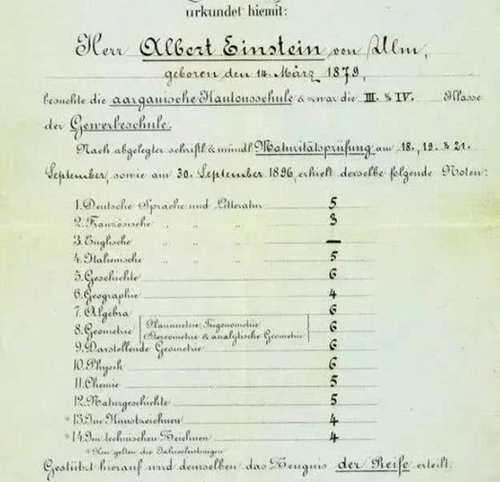 urkundet hiemit:
Herr Albert Einstein von Ulm,
geboren den 14. März 1879,
besuchte die aargauische Kantonsschule & zwar die III. & IV. Klasse
der Gewerbeschule.
Nach abgelegter schriftl & mündl Maturitätsprüfung am 18., 19. & 21.
September, sowie am 30. September 1896, erhielt derselbe folgende Noten:
1. Deutsche Sprache und Litteratur 5
2. Französische " " " 3
3. Englische " " " —
4. Italienische " " " 5
5. Geschichte 6
6. Geographie 4
7. Algebra 6
8. Geometrie Planimetrie, Trigonometrie 6
Stereometrie & analytische Geometrie 6
9. Darstellende Geometrie 6
10. Physik 6
11. Chemie 5
12. Naturgeschichte 5
* 13. Im Kunstzeichnen 4
* 14. Im technischen Zeichnen 4
* Hier gelten die Jahresleistungen.
Gestützt hierauf wird demselben das Zeugnis der Reife erteilt.